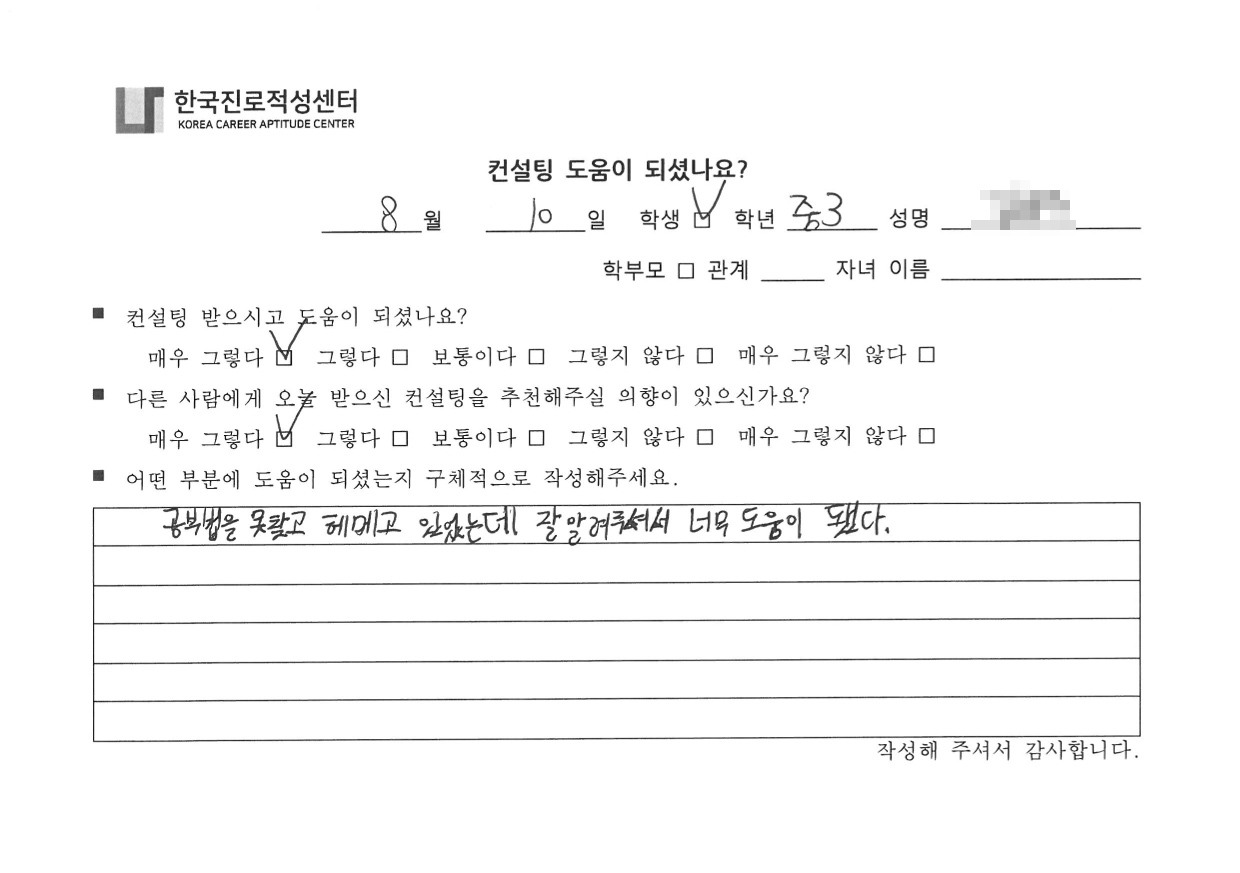 한국진로적성센터
KOREA CAREER APTITUDE CENTER
컨설팅 도움이 되셨나요?
8 월 10 일 학생 ☑ 학년 중3 성명
학부모 □ 관계 자녀 이름
■ 컨설팅 받으시고 도움이 되셨나요?
매우 그렇다 ☑ 그렇다 □ 보통이다 □ 그렇지 않다 □ 매우 그렇지 않다 □
■ 다른 사람에게 오늘 받으신 컨설팅을 추천해주실 의향이 있으신가요?
매우 그렇다 ☑ 그렇다 □ 보통이다 □ 그렇지 않다 □ 매우 그렇지 않다 □
■ 어떤 부분에 도움이 되셨는지 구체적으로 작성해주세요.
공부법을 못찾고 헤메고 있었는데 잘 알려주셔서 너무 도움이 됐다.
작성해 주셔서 감사합니다.